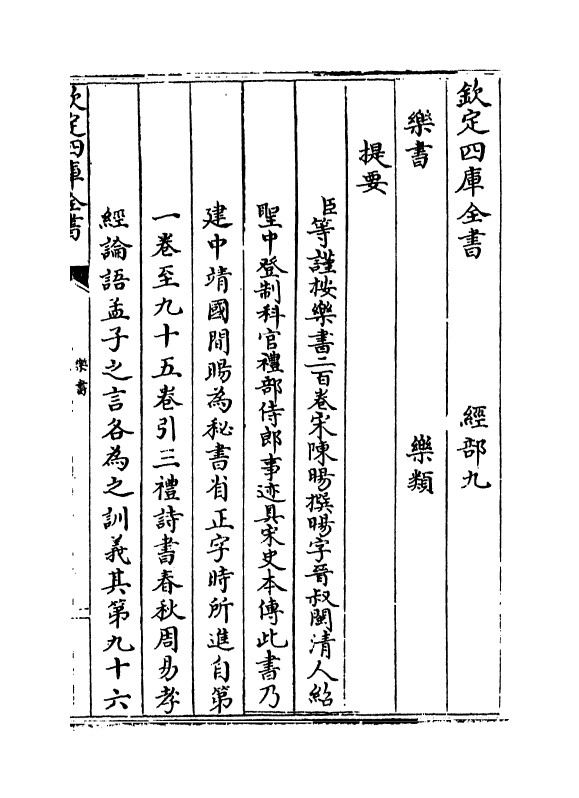 欽定四庫全書　　　經部九
樂書　　　樂類
提要
臣等謹按樂書二百卷宋陳暘撰暘字晉叔閩清人紹
聖中登制科官禮部侍郎事迹具宋史本傳此書乃
建中靖國間暘為秘書省正字時所進自第
一卷至九十五卷引三禮詩書春秋周易孝
經論語孟子之言各為之訓義其第九十六
欽定四庫全書
樂書